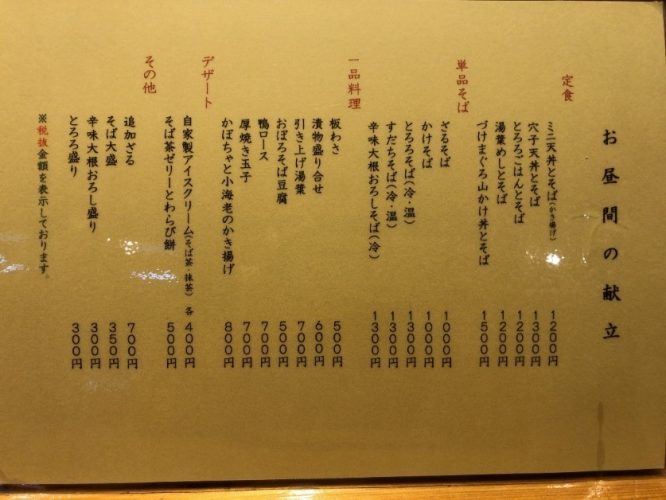 お昼間の献立
定食
ミニ天丼とそば(かき揚げ) 1200円
穴子天丼とそば 1300円
とろろごはんとそば 1200円
湯葉めしとそば 1200円
づけまぐろ山かけ丼とそば 1500円
単品そば
ざるそば 1000円
かけそば 1000円
とろろそば(冷・温) 1300円
すだちそば(冷・温) 1300円
辛味大根おろしそば(冷) 1300円
一品料理
板わさ 500円
漬物盛り合せ 600円
引き上げ湯葉 700円
おぼろそば豆腐 500円
鴨ロース 700円
厚焼き玉子 700円
かぼちゃと小海老のかき揚げ 800円
デザート
自家製アイスクリーム(そば茶・抹茶) 各 400円
そば茶ゼリーとわらび餅 500円
その他
追加ざる 700円
そば大盛 350円
辛味大根おろし盛り 300円
とろろ盛り 300円
※税抜金額を表示しております。